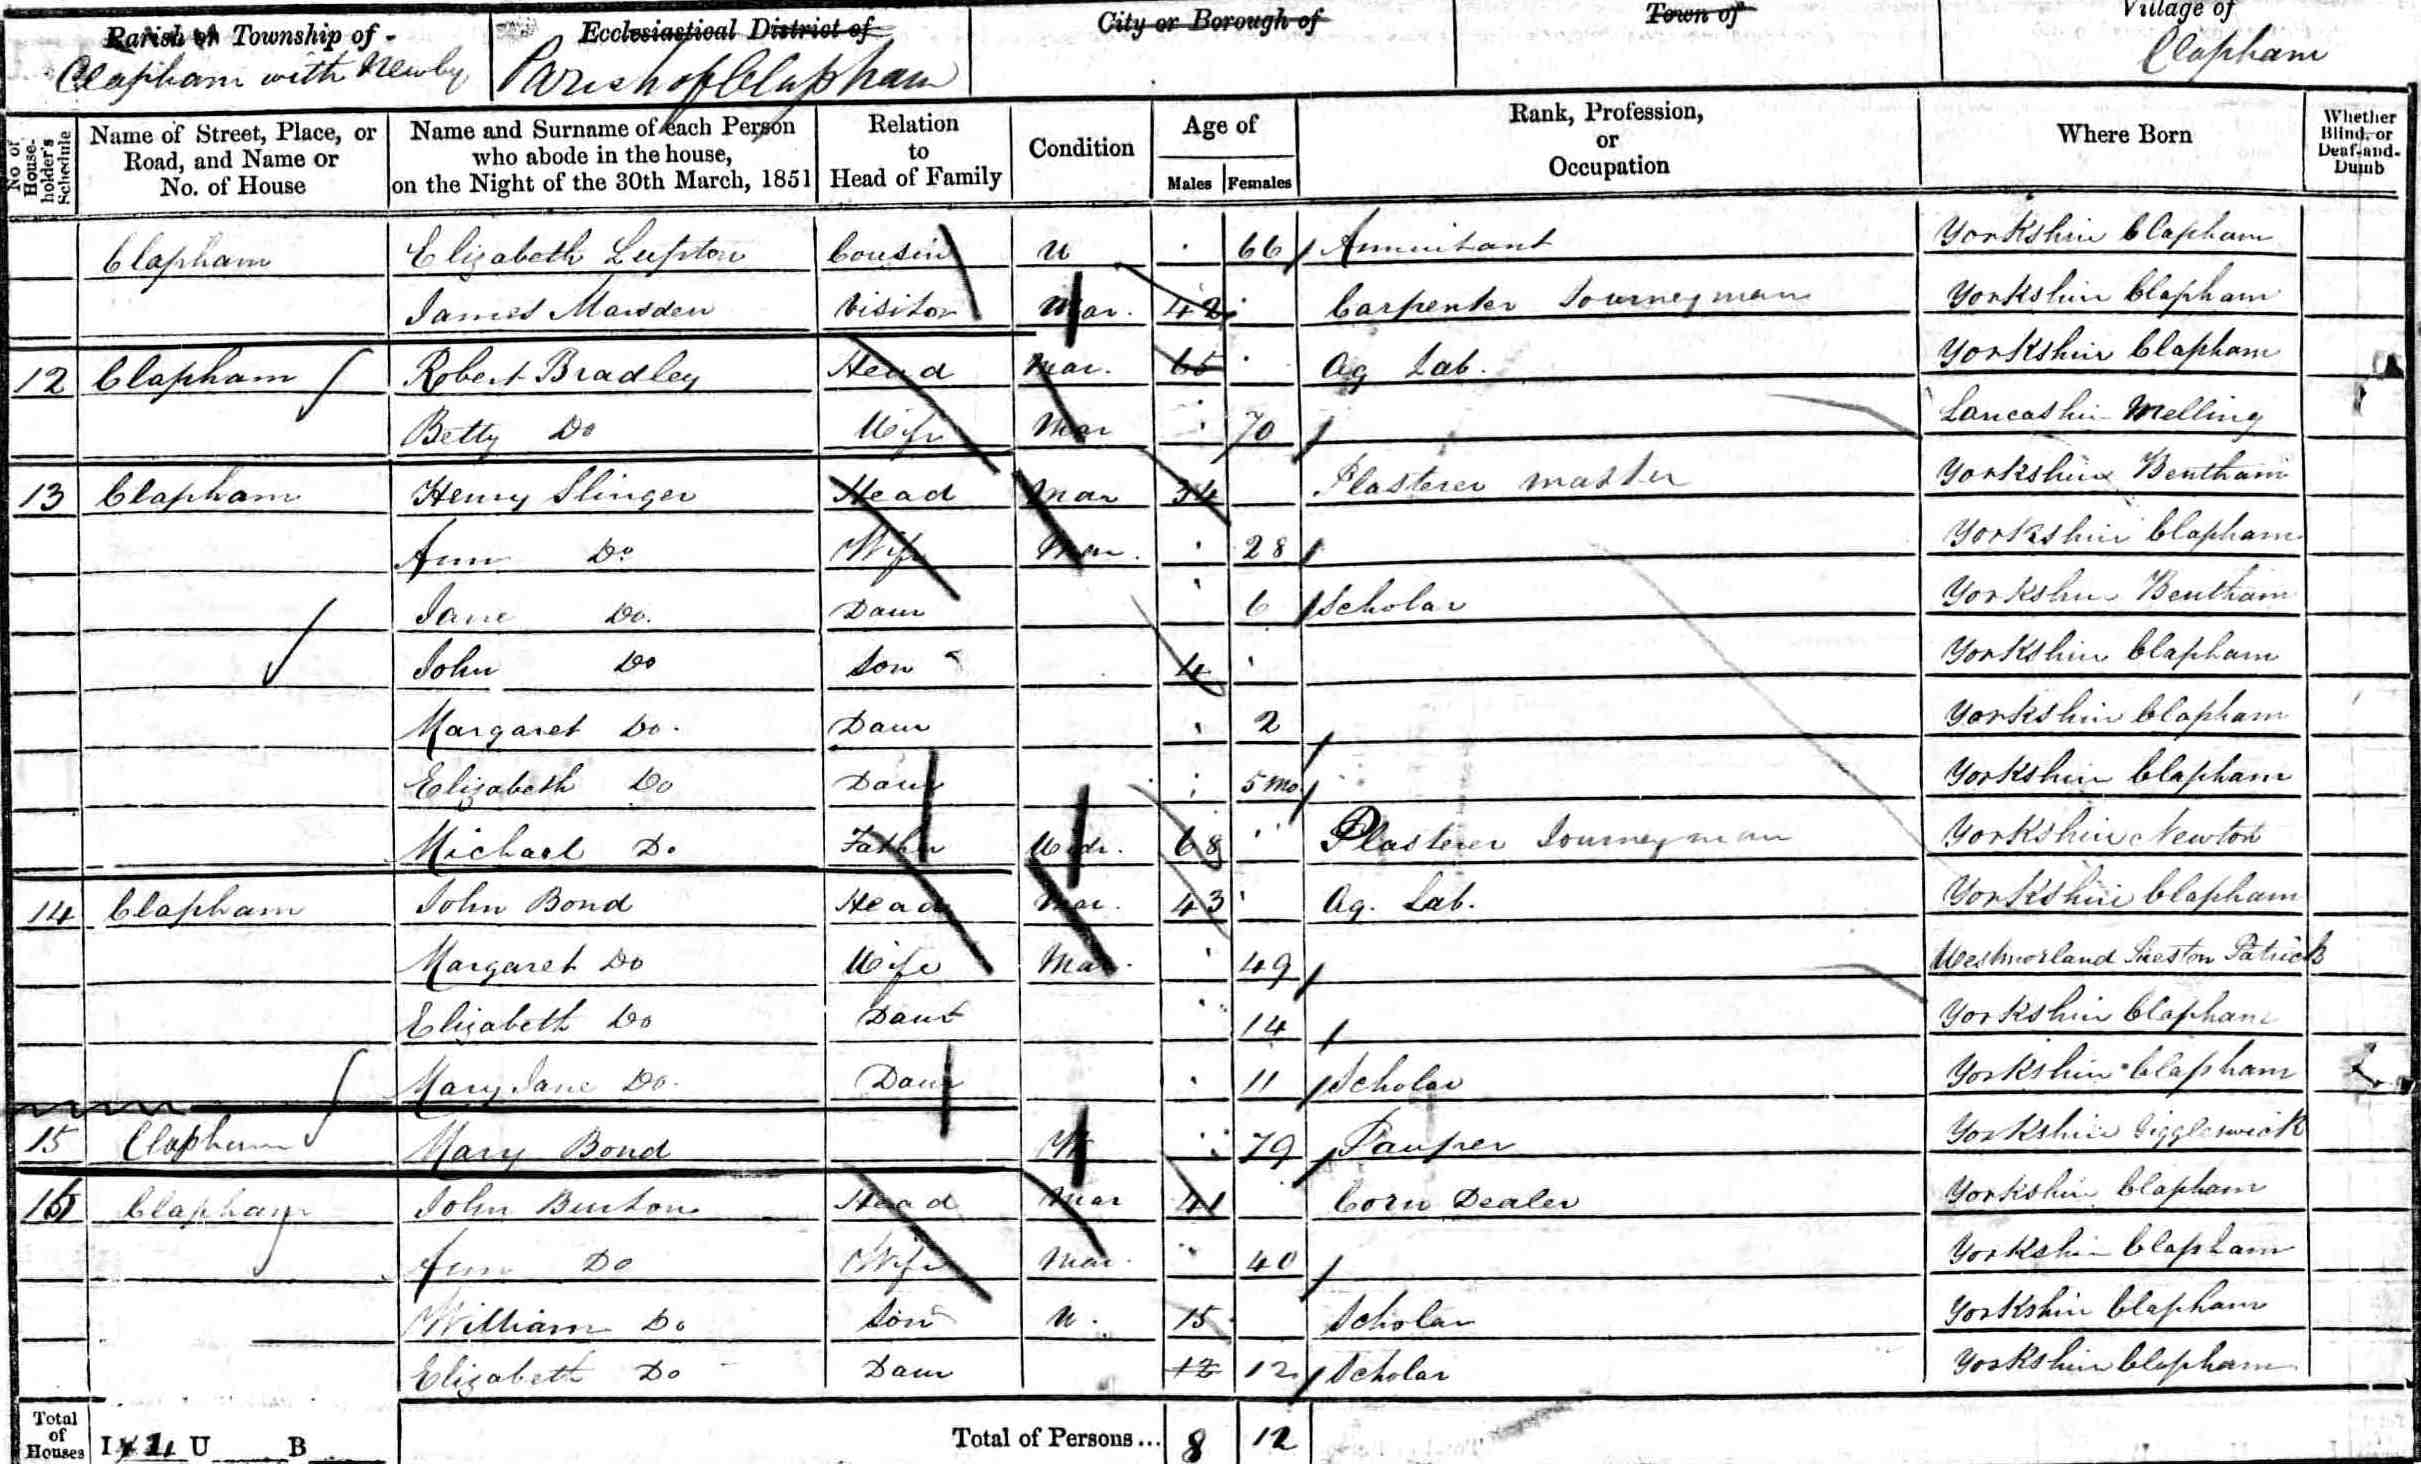 Parish or Township of Ecclesiastical District of City or Borough of Town of Village of
Clapham with Newby Parish of Clapham Clapham
No of House-holder's Schedule | Name of Street, Place, or Road, and Name or No. of House | Name and Surname of each Person who abode in the house, on the Night of the 30th March, 1851 | Relation to Head of Family | Condition | Age of Males Females | Rank, Profession, or Occupation | Where Born | Whether Blind, or Deaf-and-Dumb
Clapham Elizabeth Lupton Cousin U 66 Annuitant Yorkshire Clapham
James Marsden Visitor Mar. 42 Carpenter Journeyman Yorkshire Clapham
12 Clapham Robert Bradley Head Mar. 65 Ag Lab. Yorkshire Clapham
Betty Do Wife Mar 70 Lancashire Melling
13 Clapham Henry Slinger Head Mar 34 Plasterer master Yorkshire Bentham
Ann Do Wife Mar. 28 Yorkshire Clapham
Jane Do. Daur 6 Scholar Yorkshire Bentham
John Do Son 4 Yorkshire Clapham
Margaret Do. Daur 2 Yorkshire Clapham
Elizabeth Do Daur 5 mo Yorkshire Clapham
Michael Do Father Widr. 68 Plasterer Journeyman Yorkshire Newton
14 Clapham John Bond Head Mar. 43 Ag. Lab. Yorkshire Clapham
Margaret Do Wife Mar. 49 Westmorland Preston Patrick
Elizabeth Do Daur 14 Yorkshire Clapham
Mary Jane Do. Daur 11 Scholar Yorkshire Clapham
15 Clapham Mary Bond 79 Pauper Yorkshire Giggleswick
16 Clapham John Burton Head Mar 41 Corn Dealer Yorkshire Clapham
Ann Do Wife Mar. 40 Yorkshire Clapham
William Do Son U. 15 Scholar Yorkshire Clapham
Elizabeth Do Daur 12 12 Scholar Yorkshire Clapham
Total of Houses I U B Total of Persons... 8 12